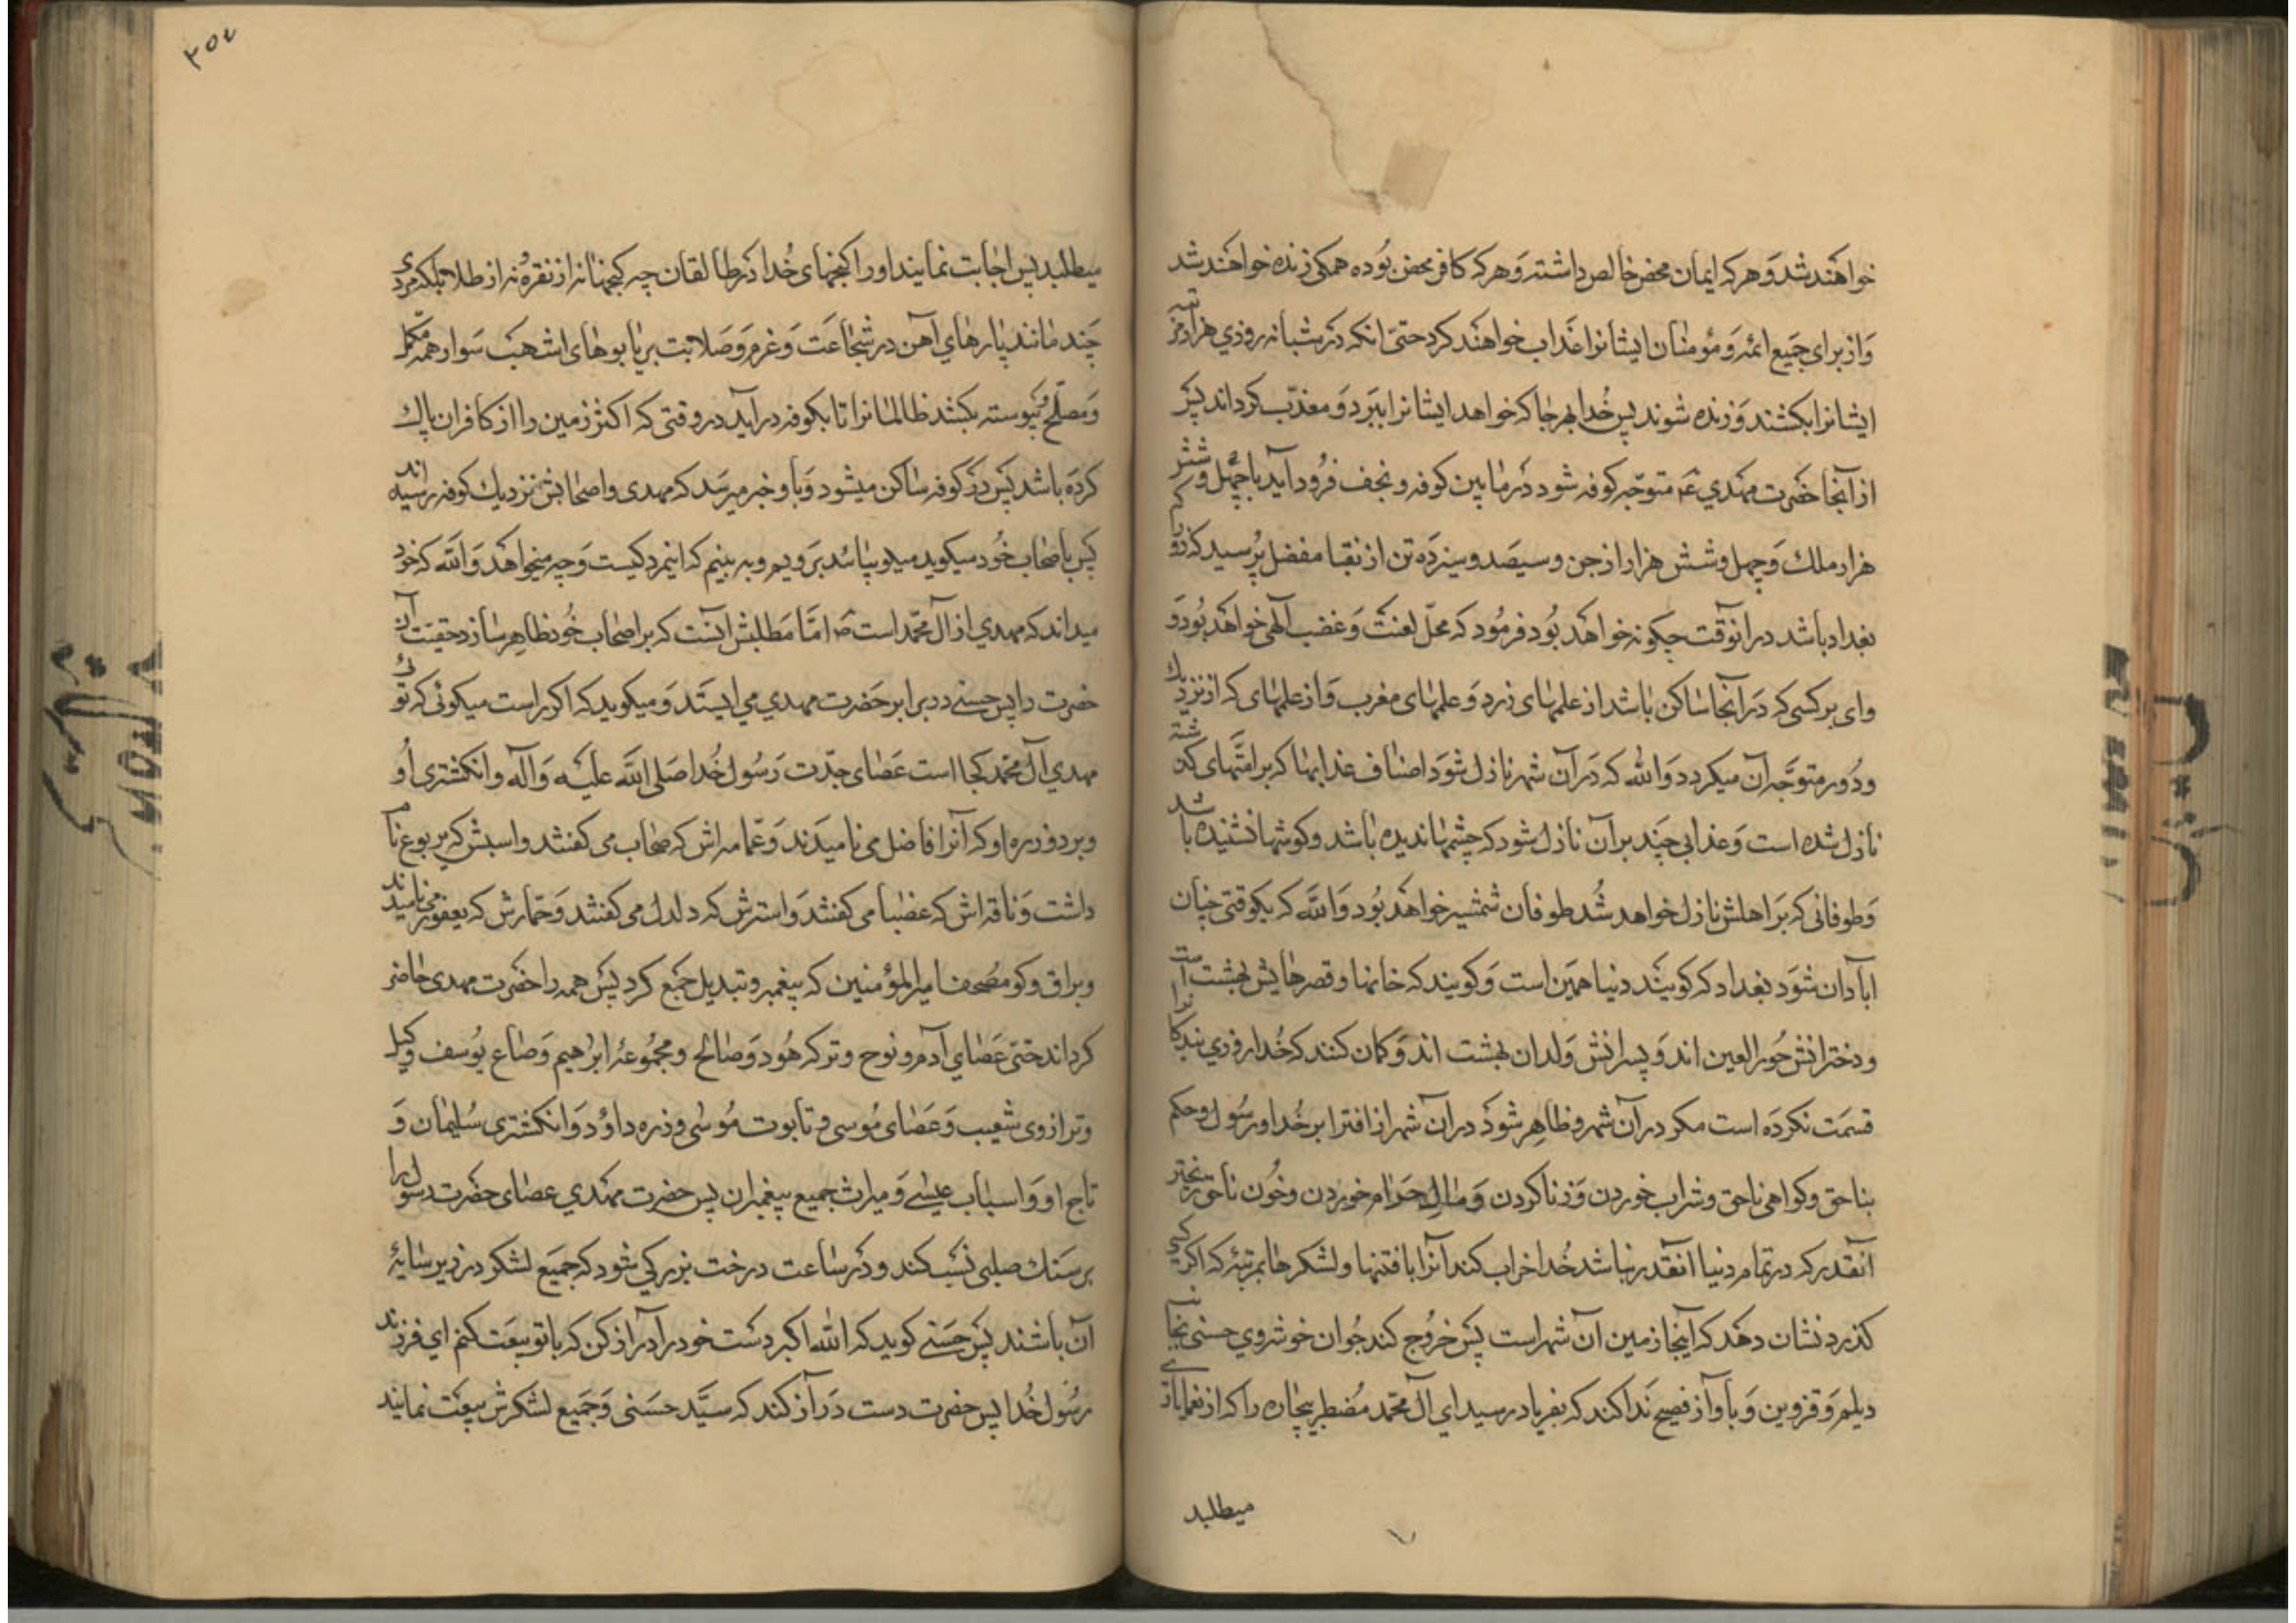 خواهند شد وَ هر که ایمان محض خالص داشته وَ هر که کافر محض بُوده همکی زنده خواهند شد
وَ از برای جَمیع ائمّه وَ مؤمنان ایشانرا عَذاب خواهند کرد حتیّ انکه در شبانه روزي هزار مرتبه
ایشانرا بکشند وَ زنده شوند پس خُدا بهر جا که خواهد ایشانرا ببَرد وَ معذّب کرداند پس
از آنجا حضرت مهدي ع متوجّه کوفه شود در مابین کوفه و نجف فرُود آید با چهل و شش
هزار ملك وَ چهل و شش هزار از جن و سیصَد و سیزدَه تن از نقبا مفضل پُرسید که زورا که
بغداد باشد در انوقت چکونه خواهَد بُود فرمُود که محلّ لعنت وَ غضب آلهی خواهَد بُود وَ
وای بر کسی که دَر آنجا ساکن باشد از علمهای زرد وَ علمهای مغرب وَ از علمهای که از نزدیك
و دُور متوجَّه آن میکردد وَالله که دَر آن شهر نازل شود اصناف عَذابها که بر امّتهای کذشته
نازل شده است وَ عذابی چَند بر آن نازل شود که چشمها ندیده باشد وکوشها نشنیده باشد
وَ طوفانی که بَر اهلش نازل خواهد شُد طوفان شمشیر خواهَد بُود وَالله که یکوقتی چنان
ابادان شوَد بغداد که کویَند دنیا همین است وَ کویند که خانها و قصرهایش بهشت است
و دخترانش حُور العین اند وَ پسرانش وَلدان بهشت اند وَ کمان کنند که خُدا روزي بندکانرا
قسمَت نکردَه است مکر در آن شهر و ظاهِر شوَد در آن شهر از افترا بر خُدا و رسُول و حکم
بناحق وکواهی ناحق و شراب خوردن وَ زنا کردن وَ مالِ حَرام خوردن و خُون ناحق ریختن
آنقدر که در تمام دنیا انقدر نباشد خُدا خراب کند آنرا با فتنها و لشکرها بمرتبَۀ که اکر کسی
کذرد نشان دهَد که اینجا زمین آن شهر است پس خرُوج کند جُوان خوشروي حسنی بجانب
دیلم وَ قزوین وَ باوآز فصیح نَدا کند که بفریاد رسید ای آل محمّد مُضطر بیچاره را که از شما یاری
میطلبد
٣٥٤
میطلبد پس اجابت نمایند او را کنجهای خُدا در طالقان چه کنجها نه از نقره و نه از طلا بلکه مردی
چَند مانند پارهاي آهن در شجاعَت وَ عَزم وَ صَلابت بر یابوهای اشهَب سَوار همه مکمّل
وَ مصلّح و پیوسته بکشد ظالمانرا تا بکوفه در آید در وقتی که اکثر زمین را از کافران پاك
کردَه باشد پَس دَر کوفه ساکن میشود وَ باو خبر میرسَد که مهدی و اصحابش نزدیك کوفه رسیده اند
پَس باصحاب خُود میکوید بیائد برَویم و به بینیم که اینمرد کیست وَ چه میخواهَد وَالله که خود
میداند که مهدي از آل محمّد است امَّا مَطلبش اینَست که بر اصحاب خُود ظاهِر سازد حقیّت آن
حضرت را پس حسنے در برابر حَضرت مهدي مي ایستَد وَ میکوید که اکر راست میکوئی که توئی
مهدي آل محمّد کجا است عَصای جدّت رَسُول خُدا صَلی الله علَیه وَ آله و انکشتری اُو
و برد و زره او که آنرا فاضل می نامیدَند وَ عمّامه اش که سحاب می کفتند و اسبش که یربوع نام
داشت وَ ناقه اش که عضبا می کفتند وَ استرش که دلدل می کفتند وَ حمارش که یعفور می نامیدند
و براق وکو مصُحف امیرالمؤمنین که بیغمبر و تبدیل جَمع کرد پس همه را حضَرت مهدی حاضر
کرداند حتیّ عَصای آدم و نوح و ترکه هُود وَ صالح و مجمُوعۀ ابراهیم وَ صاع یوُسف وکیل
و ترازوی شعیب وَ عَصای مُوسی و تابوت مُوسٰی و زره داؤد وَ انکشتری سُلیمان وَ
تاج او وَ اسباب عیسٰے وَ میراث جمیع پیغمبران پس حضرت مهَدي عصای حضَرت رسول را
بر سَنك صلبی نصَب کند و دَر ساعت درخت بزرکی شود که جمیَع لشکر در زیر سایۀ
آن باشند پَس حَسَنے کوید که الله اکبر دسَت خود را دراز کن که با تو بیعَت کنم اي فرزند
رسُول خُدا پس حضرت دست دَرآز کند که سیَّد حسَنی وَ جَمیع لشکرش بیعَت نمایند